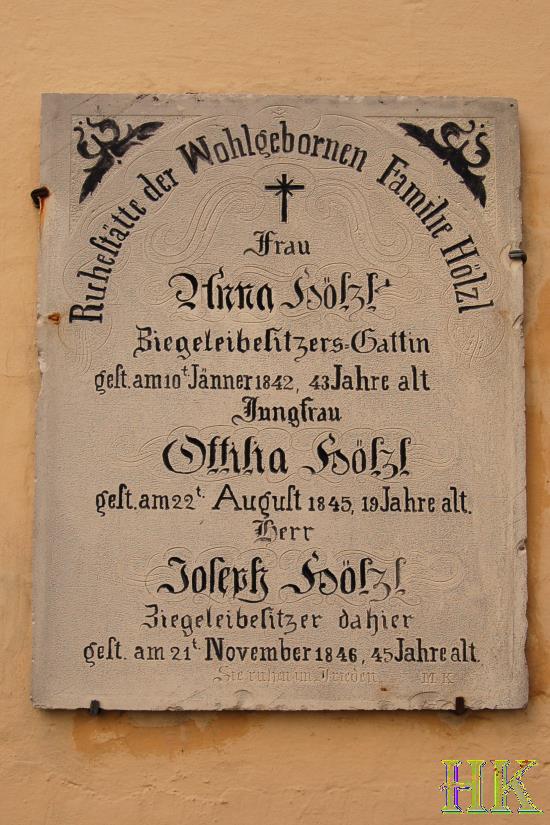 Ruheſtätte der Wohlgebornen Familie Hölzl
Frau
Anna Hölzl
Ziegeleibeſitzers=Gattin
geſt. am 10t. Jänner 1842, 43 Jahre alt
Jungfrau
Ottilia Hölzl
geſt. am 22t. Auguſt 1845, 19 Jahre alt.
Herr
Joſeph Hölzl
Ziegeleibeſitzer dahier
geſt. am 21t. November 1846, 45 Jahre alt.
Sie ruhen im Frieden. M. K.
HK